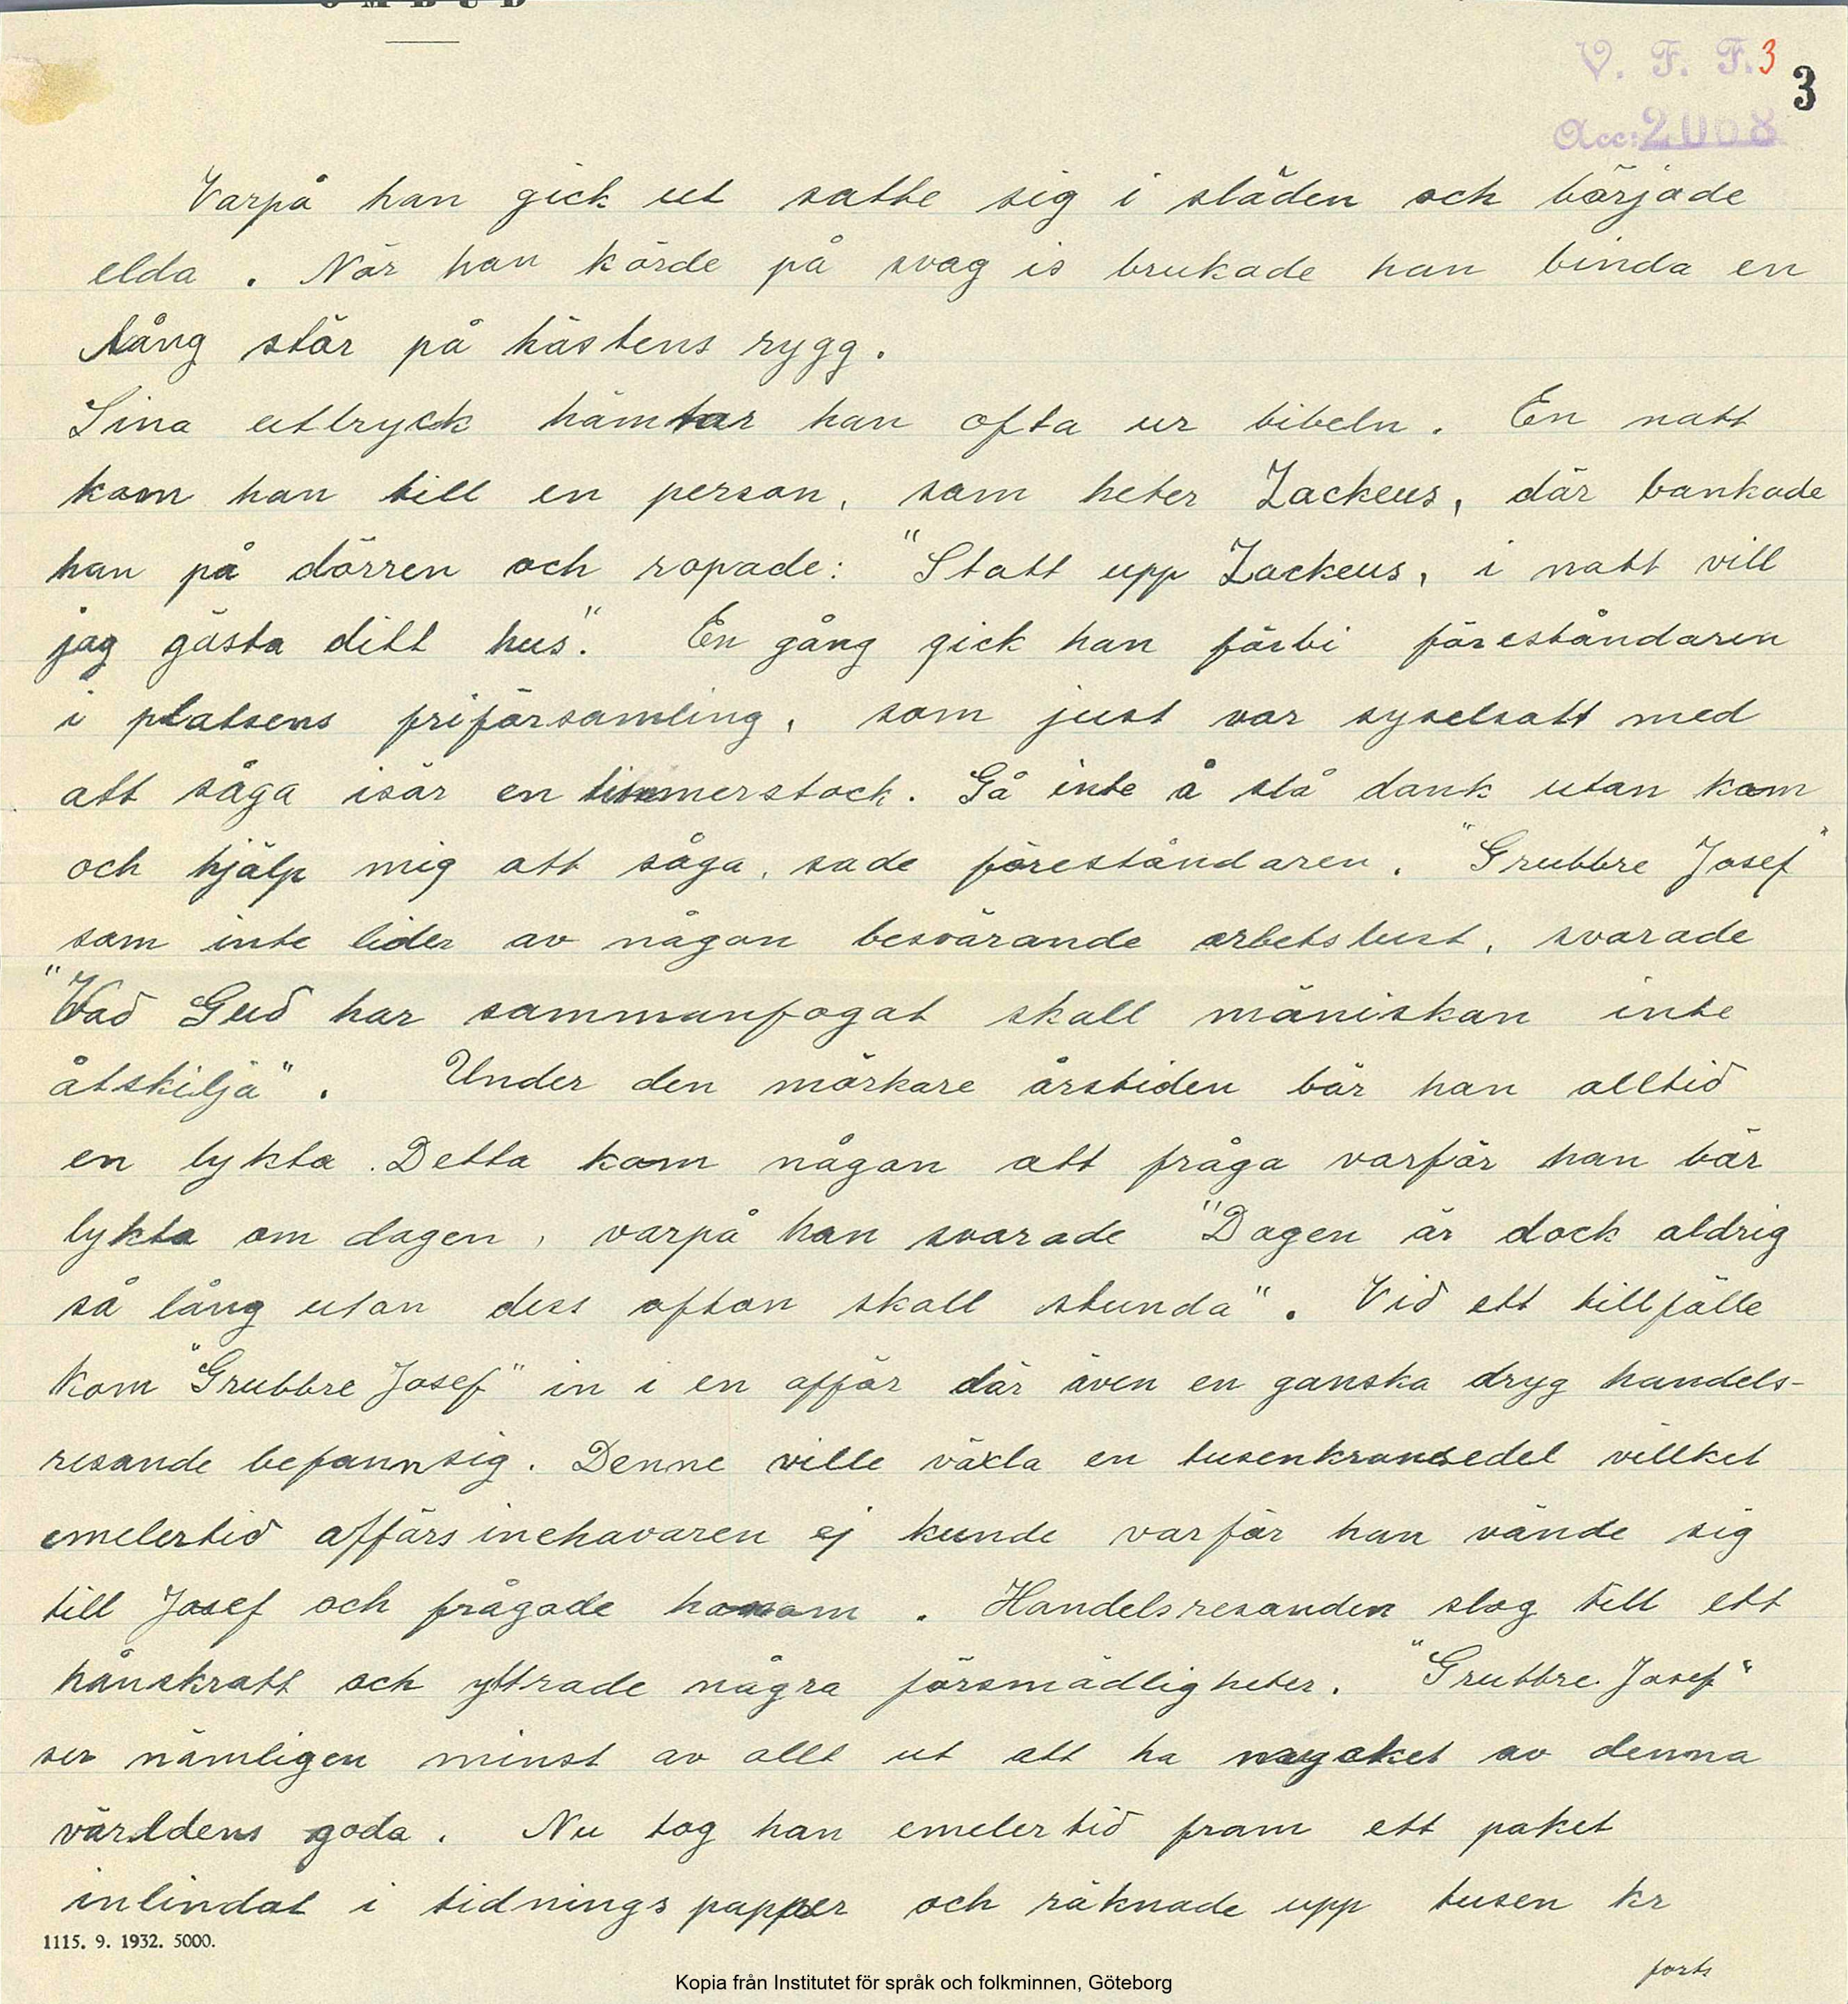 OMBUD
V. F. F. 3
3
Acc: 2008
Varpå han gick ut satte sig i släden och började
elda. När han körde på svag is brukade han binda en
lång stör på hästens rygg.
Sina uttryck hämtar han ofta ur bibeln. En natt
kom han till en person, som heter Zackeus, där bankade
han på dörren och ropade: "Statt upp Zackeus, i natt vill
jag gästa ditt hus". En gång gick han förbi föreståndaren
i platsens friförsamling, som just var syselsatt med
att såga isär en timmerstock. Gå inte å slå dank utan kom
och hjälp mig att såga, sade föreståndaren. "Grubbre Josef"
som inte lider av någon besvärande arbetslust, svarade
"Vad Gud har sammanfogat skall mäniskan inte
åtskilja". Under den mörkare årstiden bär han alltid
en lykta. Detta kom någon att fråga varför han bär
lykta om dagen, varpå han svarade "Dagen är dock aldrig
så lång utan dess afton skall stunda". Vid ett tillfälle
kom "Grubbre Josef" in i en affär där även en ganska dryg handels-
resande befann sig. Denne ville växla en tusenkronesedel villket
emelertid affärsinehavaren ej kunde varför han vände sig
till Josef och frågade honom. Handelsresanden slog till ett
hånskratt och yttrade några försmädligheter. "Grubbre Josef"
ser nämligen minst av allt ut att ha mycket av denna
världens goda. Nu tog han emelertid fram ett paket
inlindat i tidningspapper och räknade upp tusen kr
1115. 9. 1932. 5000.
forts
Kopia från Institutet för språk och folkminnen, Göteborg